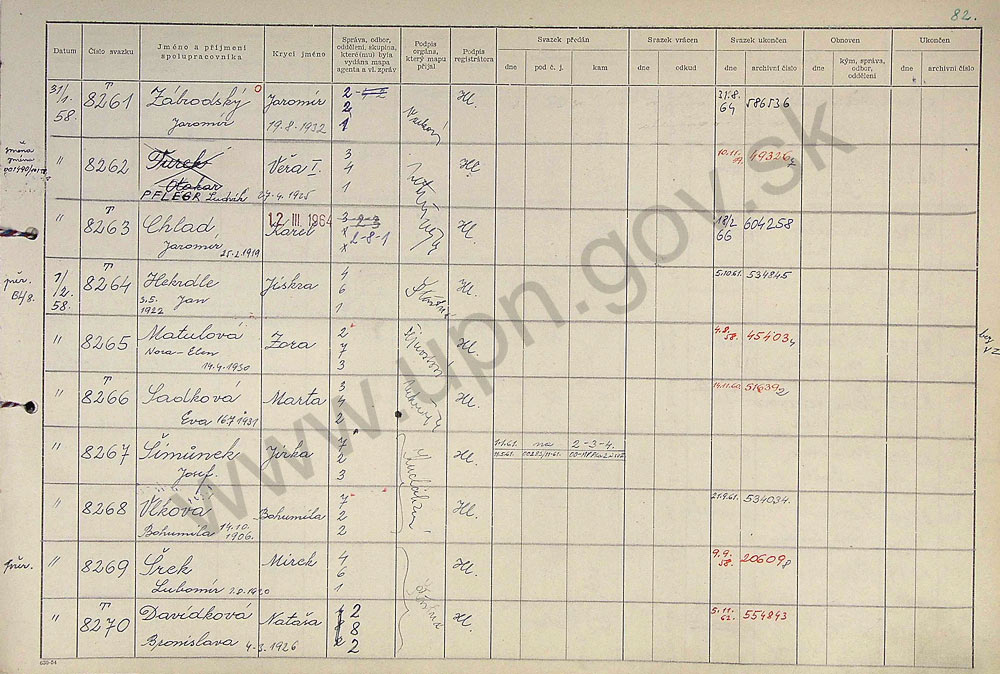 82.
Datum Číslo svazku Jméno a příjmení spolupracovníka Krycí jméno Správa, odbor, oddělení, skupina, které(mu) byla vydána mapa agenta a vl. zpráv Podpis orgána, který mapu přijal Podpis registrátora Svazek předán Svazek vrácen Svazek ukončen Obnoven Ukončen
dne pod č. j. kam dne odkud dne archivní číslo dne kým, správa, odbor, oddělení dne archivní číslo
31/1. 58. T 8261 Zábrodský Jaromír Jaromír 19.8.1932 2 2 1 Hl. 21.8. 64 586536
změna jména
" 8262 Turek Otakar PFLEGR Ludvík Věra I. 27.4.1925 3 4 1 Hl. 10.11. 49326
" T 8263 Chlad Jaromír 25.2.1919 12 III. 1964 Karel 3 x x 2-8-1 Hl. 18/2 66 604258
pěr. B4/8.
1/2. 58. T 8264 Hekrdle Jan 3.5. 1922 Jiskra 4 6 1 Hl. 5.10.61. 534845
" 8265 Matulová Nora-Elen 14.4.1930 Zora 2 7 3 Hl. 4.8. 58. 45403
" T 8266 Sadková Eva 16.7.1931 Marta 3 4 2 Hl. 14.11.60. 51639
" T 8267 Šimůnek Josef. Jirka 7 2 3 Hl. 1.1.61. na 2-3-4.
" 8268 Vlková Bohumila 14.10. 1906. Bohumila 7 2 2 Hl. 21.9.61. 534034.
pěr.
" 8269 Šrek Lubomír Mirek 4 6 1 Hl. 9.9. 58. 20609
" T 8270 Davídková Bronislava 4-3.1926 Nataša 2 8 2 Hl. 5.11. 62. 554843
www.upn.gov.sk